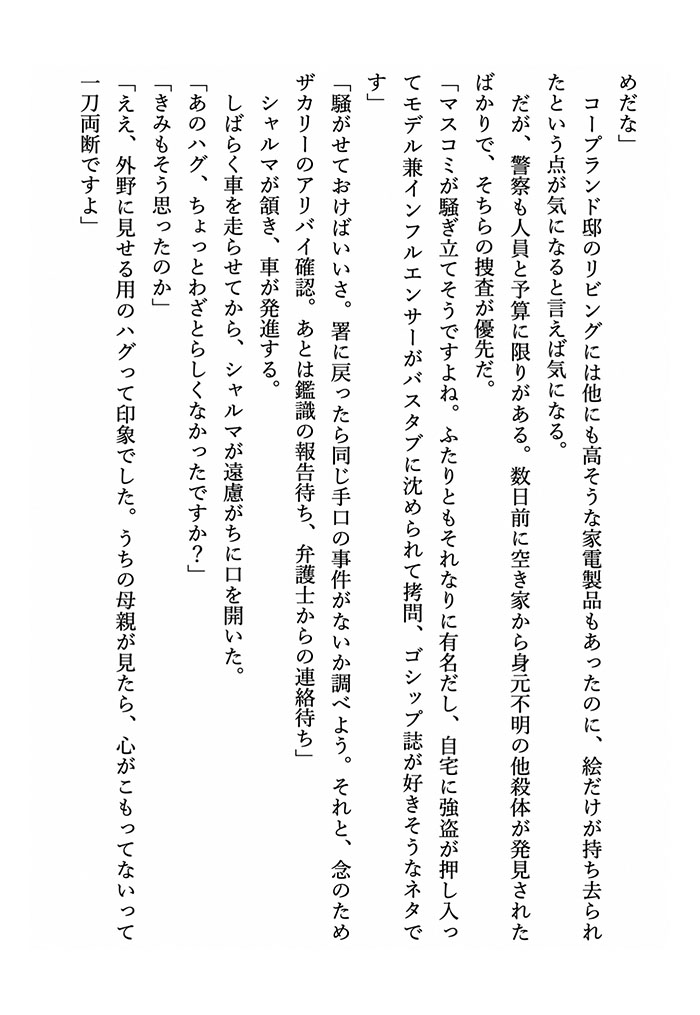 めだな」
　コープランド邸のリビングには他にも高そうな家電製品もあったのに、絵だけが持ち去られ
たという点が気になると言えば気になる。
　だが、警察も人員と予算に限りがある。数日前に空き家から身元不明の他殺体が発見された
ばかりで、そちらの捜査が優先だ。
「マスコミが騒ぎ立てそうですよね。ふたりともそれなりに有名だし、自宅に強盗が押し入っ
てモデル兼インフルエンサーがバスタブに沈められて拷問、ゴシップ誌が好きそうなネタで
す」
「騒がせておけばいいさ。署に戻ったら同じ手口の事件がないか調べよう。それと、念のため
ザカリーのアリバイ確認。あとは鑑識の報告待ち、弁護士からの連絡待ち」
　シャルマが頷き、車が発進する。
　しばらく車を走らせてから、シャルマが遠慮がちに口を開いた。
「あのハグ、ちょっとわざとらしくなかったですか？」
「きみもそう思ったのか」
「ええ、外野に見せる用のハグって印象でした。うちの母親が見たら、心がこもってないって
一刀両断ですよ」